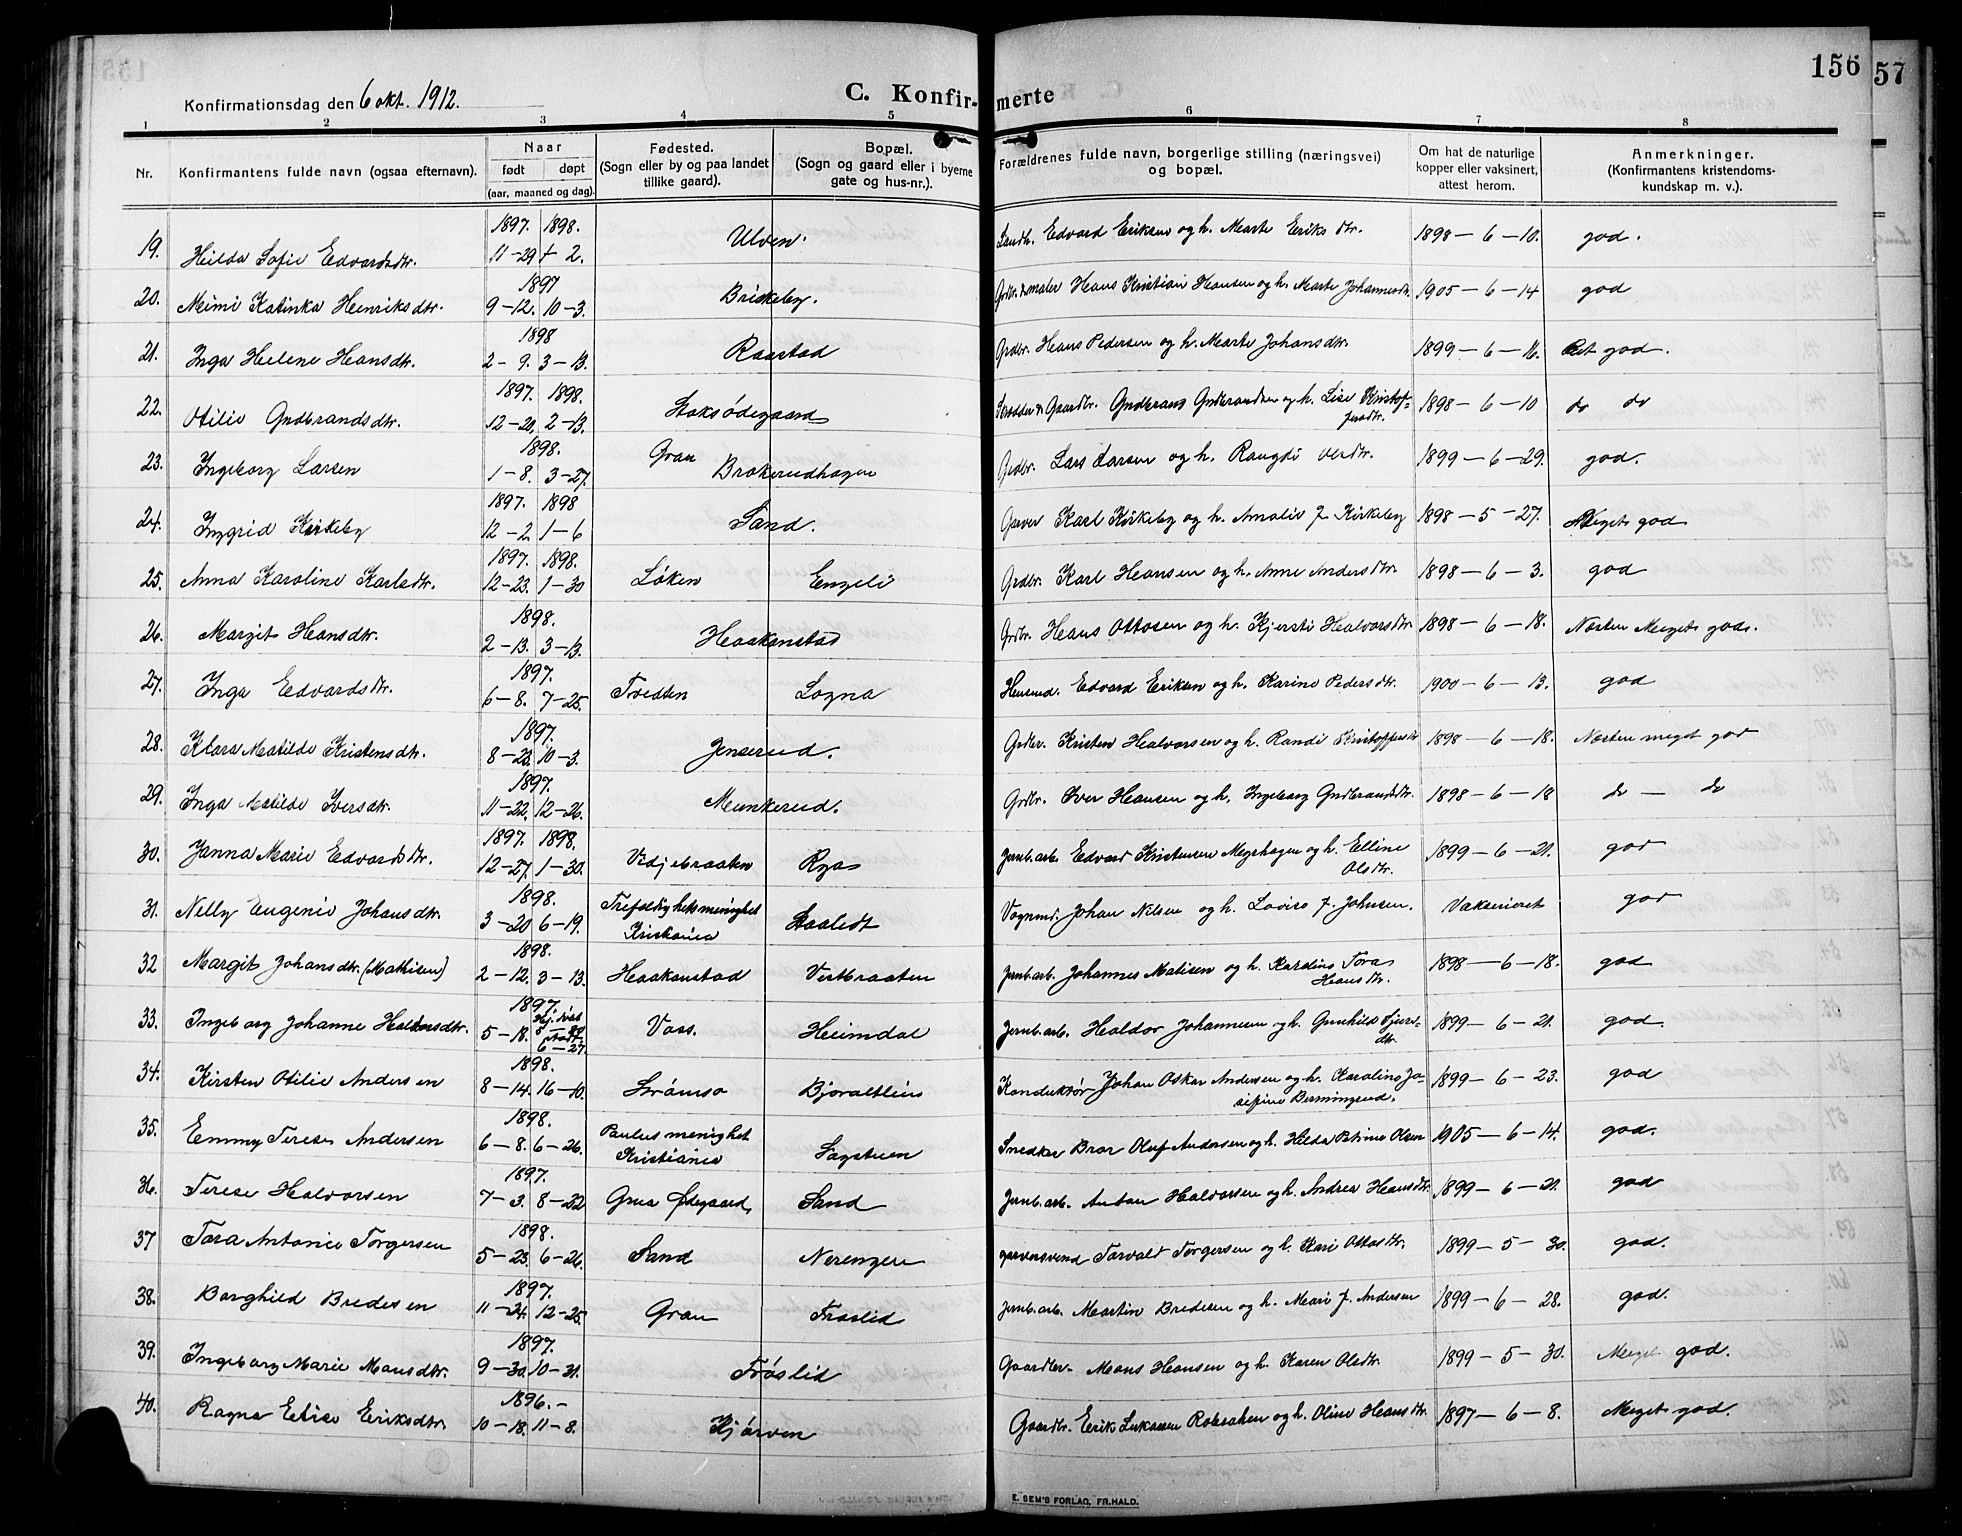 156
57
Konfirmationsdag den 6 okt. 1912.
C. Konfirmerte
1 2 3 4 5 6 7 8
Nr. Konfirmantens fulde navn (ogsaa efternavn). Naar født døpt (aar, maaned og dag). Fødested. (Sogn eller by og paa landet tillike gaard). Bopæl. (Sogn og gaard eller i byerne gate og hus-nr.). Forældrenes fulde navn, borgerlige stilling (næringsvei) og bopæl. Om hat de naturlige kopper eller vaksinert, attest herom. Anmerkninger. (Konfirmantens kristendoms-kundskap m. v.).
19. Hilda Sofie Edvardsdtr. 1897. 11-29 1898. 1-2. Ulven. Landh. Edvard Eriksen og h. Marte Eriksdtr. 1898-6-10. god.
20. Mimi Katinka Henriksdtr. 1897 9-12. 10-3. Briskeby. Grdbr. & maler Hans Kristian Hansen og h. Marte Johannesdtr. 1905-6-14 god
21. Inga Helene Hansdtr. 1898 2-9. 3-13. Raastad Grdbr. Hans Pedersen og h. Marte Johansdtr. 1899-6-16. Ret god.
22. Otilie Gudbrandsdtr. 1897. 12-20. 1898. 2-13. Staksødegaard Gaardbr. Gudbrand Gudbrandsen og h. Lise Kristoffersdtr. 1898-6-10 do do
23. Ingeborg Larsen 1898. 1-8. 3-27. Gran Brokerudhagen Grdbr. Lars Larsen og h. Rangdi Olsdtr. 1899-6-29. god.
24. Ingrid Kirkeby 1897. 12-2 1898 1-6 Sand. Garver Karl Kirkeby og h. Amalie f. Kirkeby 1898-5-27. Meget god
25. Anna Karoline Karlsdtr. 1897. 12-23. 1898. 1-30 Løken Engeli Grdbr. Karl Hansen og h. Anne Andersdtr. 1898-6-3. god
26. Margit Hansdtr. 1898. 2-13. 3-13. Haakenstad Grdbr. Hans Ottosen og h. Kjersti Halvorsdtr. 1898-6-18. Næsten Meget god.
27. Inga Edvardsdtr. 1897. 6-8. 7-25. Tveden Sogna Edvard Eriksen og h. Karine Pedersdtr. 1900-6-13. god
28. Klara Matilde Kristensdtr. 1897. 8-23. 10-3. Jenserud. Grdbr. Kristen Halvorsen og h. Randi Kristoffersdtr 1898-6-18. Næsten meget god
29. Inga Matilde Iversdtr. 1897. 11-22. 12-26. Munkerud. Grdbr. Iver Hansen og h. Ingeborg Gudbrandsdtr. 1898-6-18 do - do
30. Janna Marie Edvardsdtr. 1897. 12-27. 1898. 1-30. Vidjebraaten Rya Jernb.arb. Edvard Kristensen Myrhagen og h. Elline Olsdtr. 1899-6-21. god
31. Nelly Eugenie Johansdtr. 1898. 3-20 6-19. Trefoldighetsmenighet Kristiania Staaledt Vognmd. Johan Nilsen og h. Lovise f. Johnsen. Vaksineret god
32 Margit Johansdtr. (Mathisen) 1898. 2-12. 3-13. Haakenstad Vestbraaten Jernb.arb. Johannes Matisen og h. Karoline Tora Hansdtr. 1898-6-18. god
33. Ingeborg Johanne Haldorsdtr. 1897. 5-18. 6-27. Voss. Heimdal Jernb.arb. Haldor Johannesen og h. Gunhild Sjursdtr. 1899-6-21. god.
34. Kirsten Otilie Andersen 1898. 8-14. 16-10. Strømsø Bjoraltlien Konduktør Johan Oskar Andersen og h. Karoline Josefine Bermingrud. 1899-6-23. god
35. Emmy Terese Andersen 1898. 6-8. 6-26. Paulus menighet Kristiania Sagstuen Snedker Bror Oluf Andersen og h. Hilda Petrine Olsen 1905-6-14. god.
36. Terese Halvorsen 1897. 7-3. 8-22 Grua Ødegaard, Sand Jernb.arb. Anton Halvorsen og h. Andrea Hansdtr. 1899-6-21. god
37 Tora Antonie Torgersen 1898. 5-23. 6-26. Sand Nerengen garversvend Torvald Torgersen og h. Kari Ottosdtr. 1899-5-30. god.
38. Borghild Bredesen 1897. 11-24. 12-25. Gran Frøslid Jernb.arb. Martin Bredesen og h. Mari f. Andersen 1899-6-28. god.
39. Ingeborg Marie Mansdtr. 1897. 9-30. 10-31. Frøslid Gaardbr. Mons Hansen og h. Karen Olsdtr. 1899-5-30. Meget god.
40. Ragna Elise Eriksdtr. 1896.- 10-18. 11-8. Kjørven Gaardbr. Erik Lukassen og h. Oline Hansdtr. 1897-6-8. Meget god.
E. SEM'S FORLAG, FR.HALD.